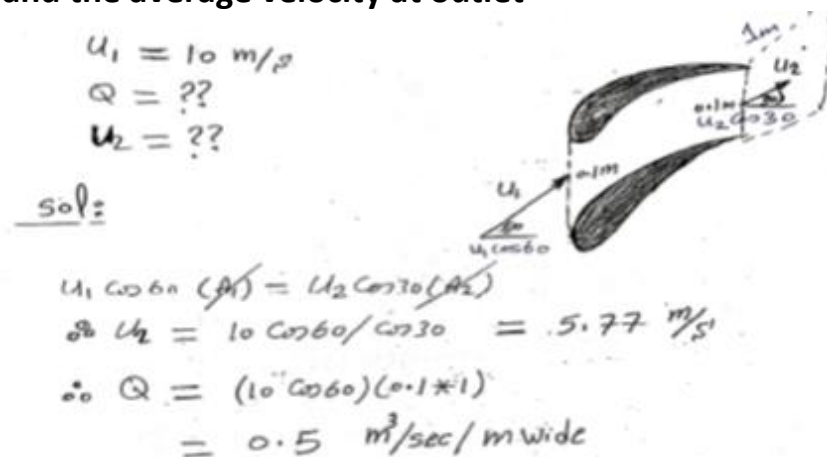 and the average velocity at outlet
U₁ = 10 m/s
Q = ??
U₂ = ??
sol:
1m
U₂
0.1m
U₂ Cos30
0.1m
U₁
60
U₁ Cos60
U₁ Cos60 (A₁) = U₂ Cos30 (A₂)
∴ U₂ = 10 Cos60 / Cos30 = 5.77 m/s
∴ Q = (10 Cos60)(0.1*1)
= 0.5 m³/sec/m wide